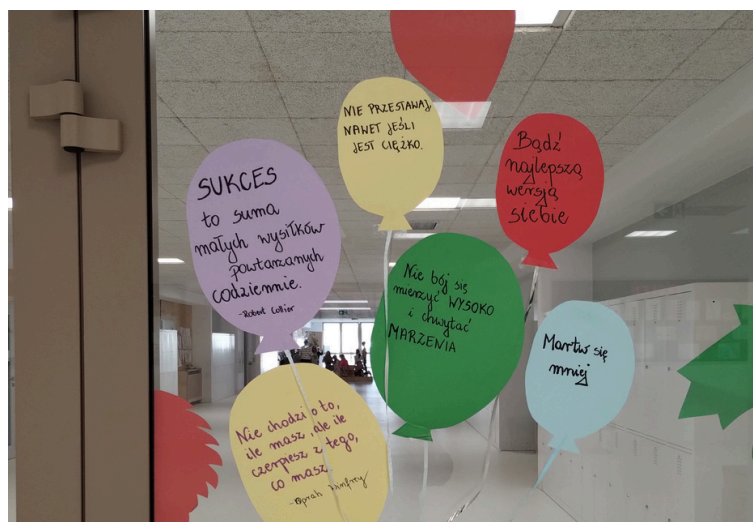 SUKCES
to suma
małych wysiłków
powtarzanych
codziennie.
-Robert Collier
NIE PRZESTAWAJ
NAWET JEŚLI
JEST CIĘŻKO.
Bądź
najlepszą
wersją
siebie
Nie bój się
mierzyć WYSOKO
i chwytać
MARZENIA
Martw się
mniej
Nie chodzi o to,
ile masz, ale ile
czerpiesz z tego,
co masz.
-Oprah Winfrey